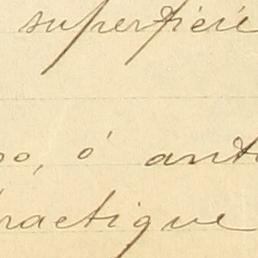 superficie
po, ó ant
practique